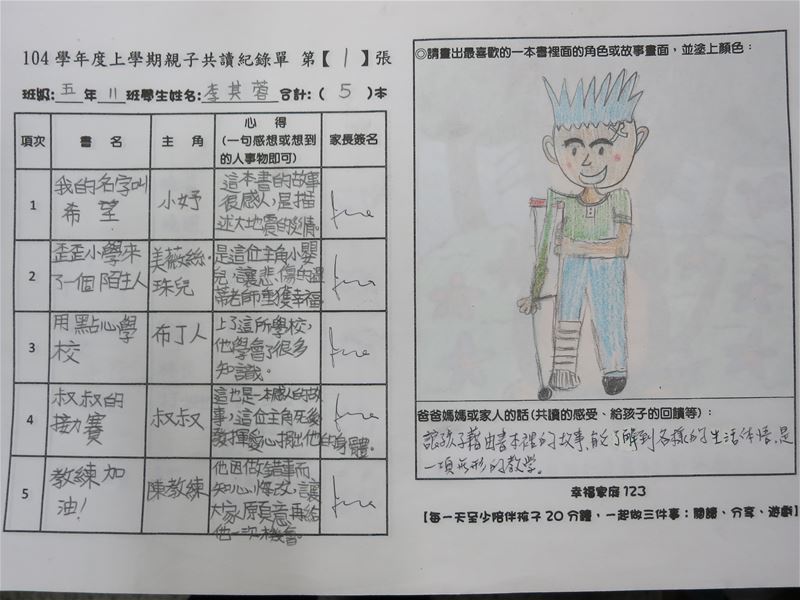 104學年度上學期親子共讀紀錄單 第【1】張
班級:五年11班學生姓名:李其蓉合計:(5)本
項次
書 名
主 角
心 得
(一句感想或想到
的人事物即可)
家長簽名
1
我的名字叫
希望
小妤
這本書的故事
很感人,是描
述大地震的災情。
2
歪歪小學來
了一個陌生人
美薇絲.
珠兒
是這位主角小嬰
兒,讓悲傷的
老師重獲幸福
3
用點心學
校
布丁人
上了這所學校,
他學會了很多
知識。
4
叔叔的
接力賽
叔叔
這也是一本感人的故
事,這位主角死後
發揮愛心捐出他的身體。
5
教練加
油!
陳教練
他因做錯事而
知心悔改,讓
大家願意再給
他一次機會。
◎請畫出最喜歡的一本書裡面的角色或故事畫面,並塗上顏色:
爸爸媽媽或家人的話(共讀的感受、給孩子的回饋等):
讓孩子藉由書本裡的故事,能了解到各樣的生活体悟,是
一項無形的教學。
幸福家庭123
【每一天至少陪伴孩子20分鐘,一起做三件事:閱讀、分享、遊戲】